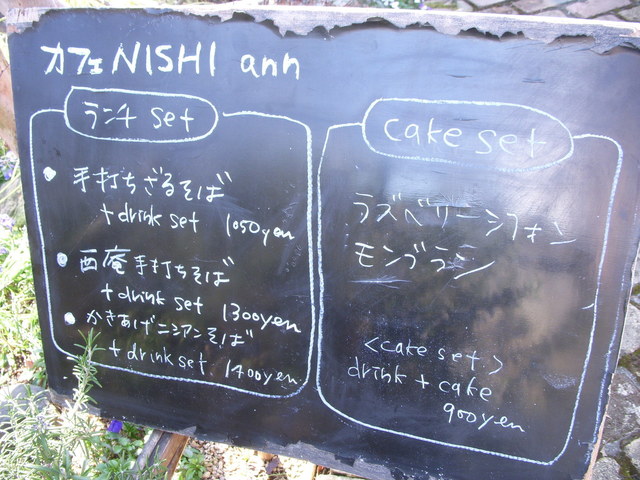 カフェ NISHI ann
ランチ set
・手打ちざるそば
+ drink set 1050yen
・西庵手打ちそば
+ drink set 1300yen
・かきあげニシアンそば
+ drink set 1400yen
cake set
ラズベリーシフォン
モンブラン
<cake set>
drink + cake
900yen